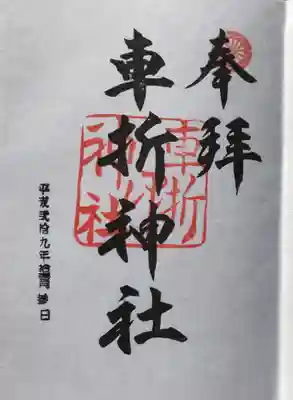 奉拝
車折神社
車折神社
平成弐拾九年拾弐月参日